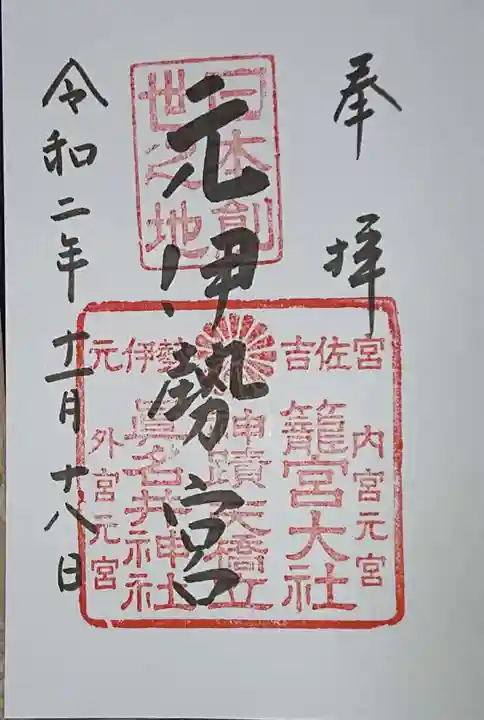 奉拝
日本創
世之地
元伊勢宮
吉佐宮
元伊勢
内宮元宮
籠宮大社
神蹟天橋立
眞名井神社
外宮元宮
令和二年十一月十八日